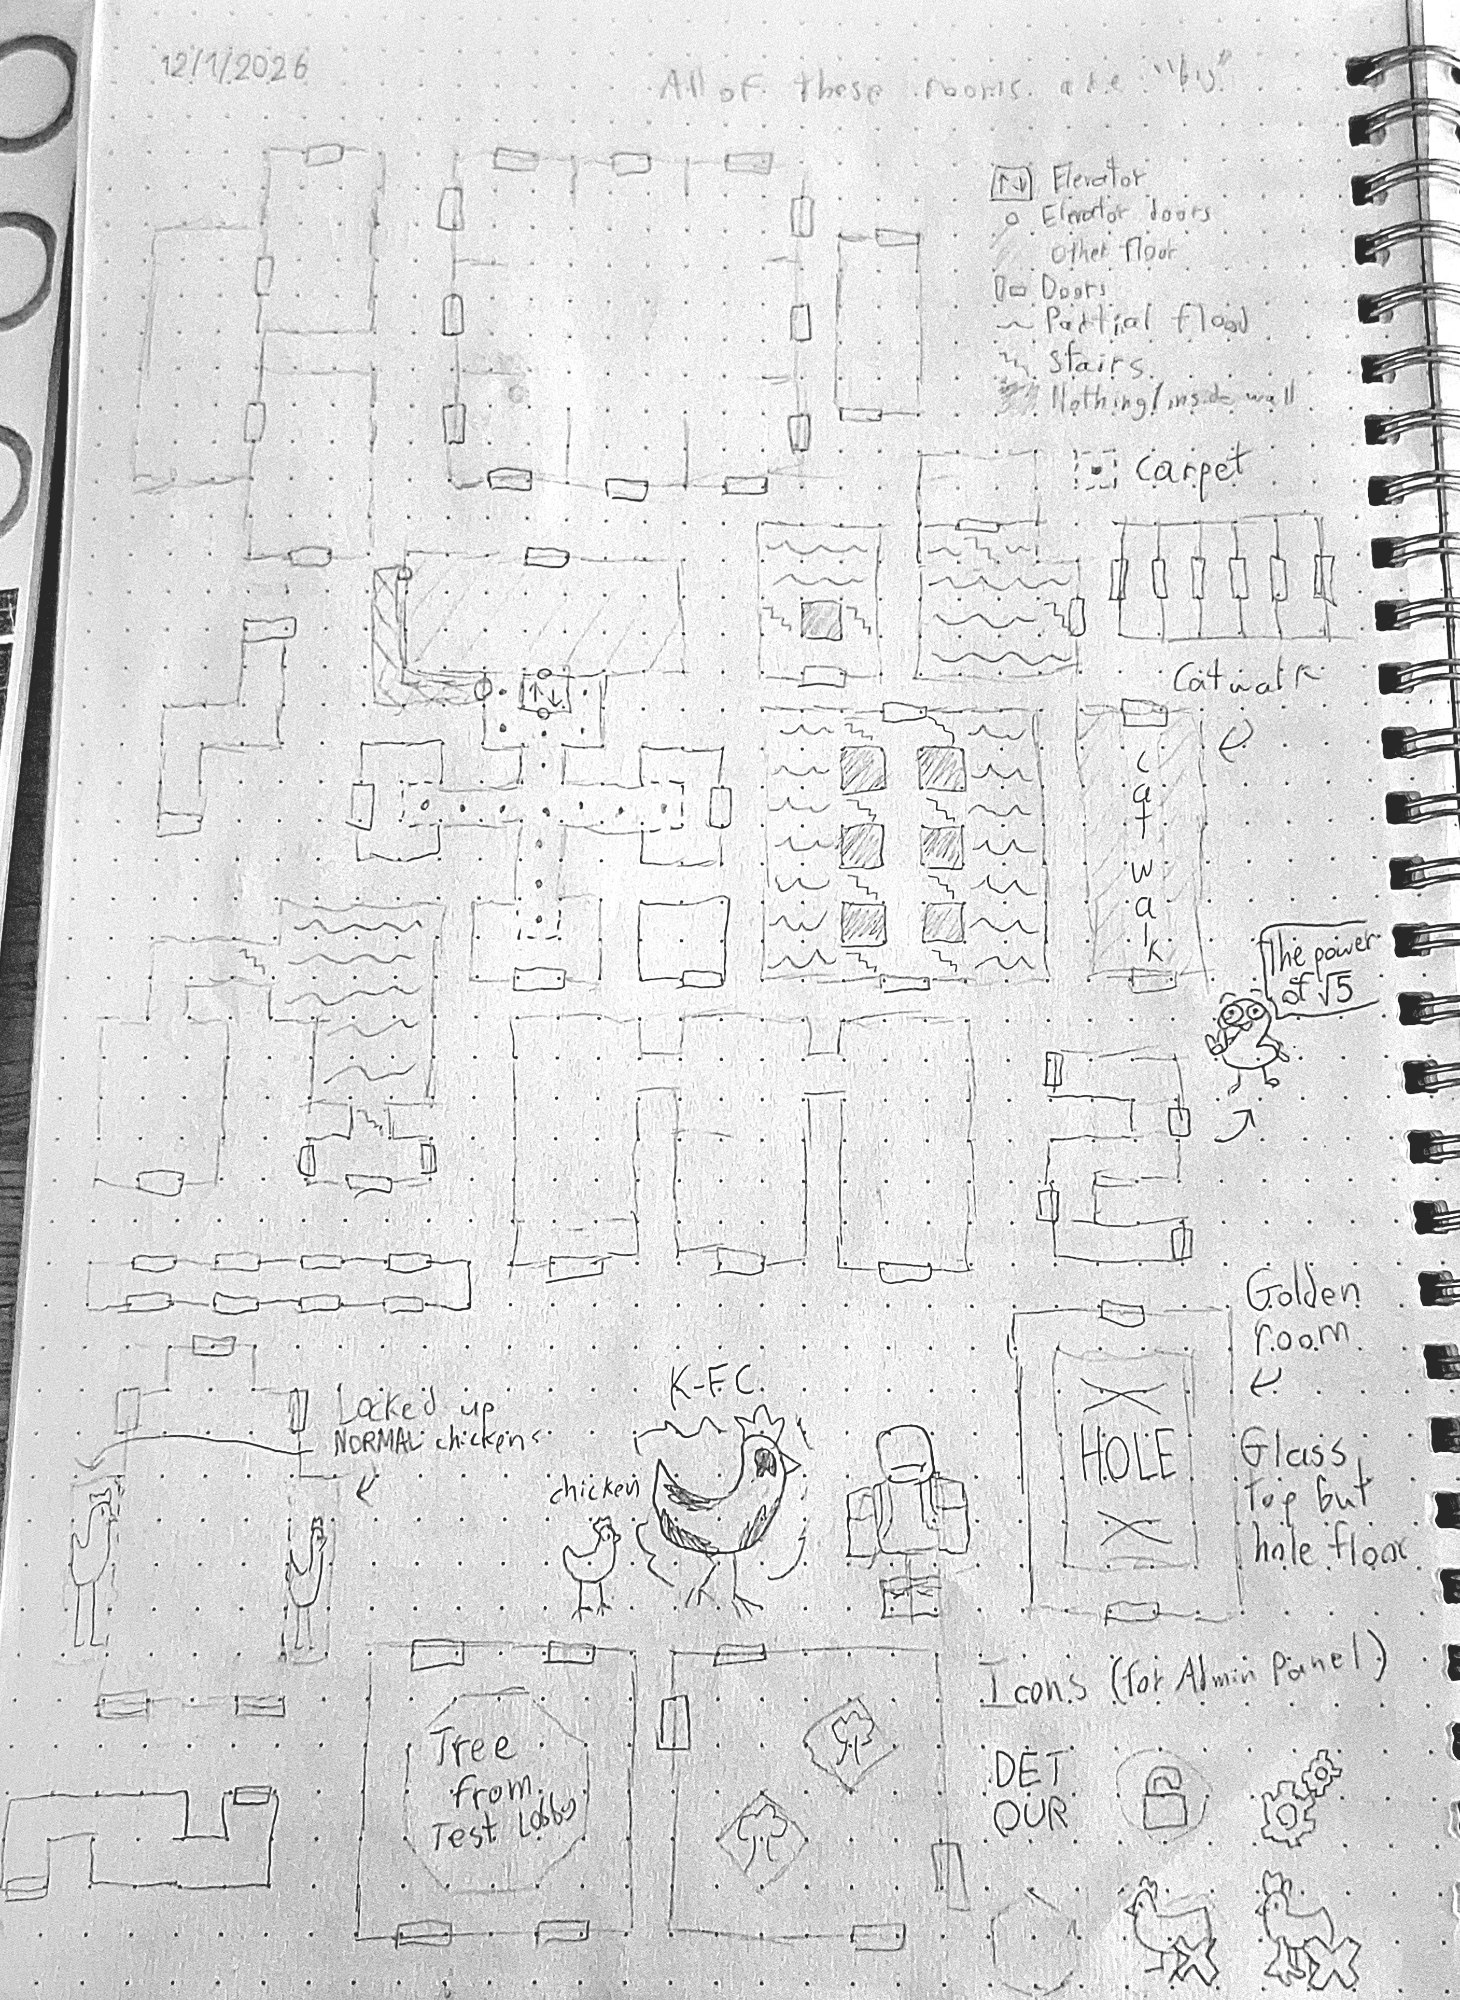 12/1/2026
All of these rooms are "big"
Elevator
Elevator doors
other floor
Doors
Partial flood
stairs
Nothing/inside wall
Carpet
Catwalk
catwalk
The power
of √5
Golden
room
Glass
top but
hole floor
HOLE
K-FC
Locked up
NORMAL chickens
chicken
Tree
from
Test Lobby
Icons (for Admin Panel)
DET
OUR